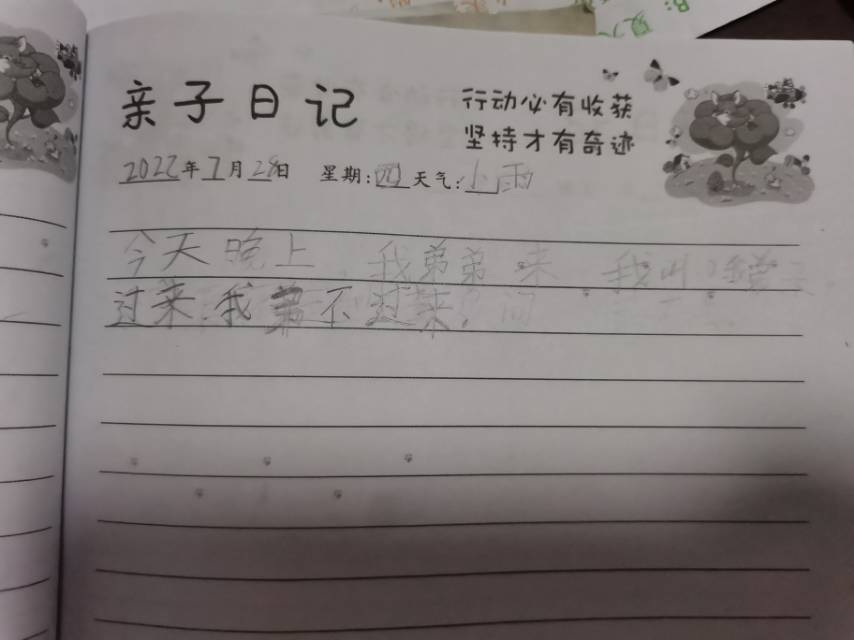 亲子日记
行动必有收获
坚持才有奇迹
2022年7月28日 星期:四 天气:小雨
今天晚上,我弟弟来,我叫
过来,我弟不过来。